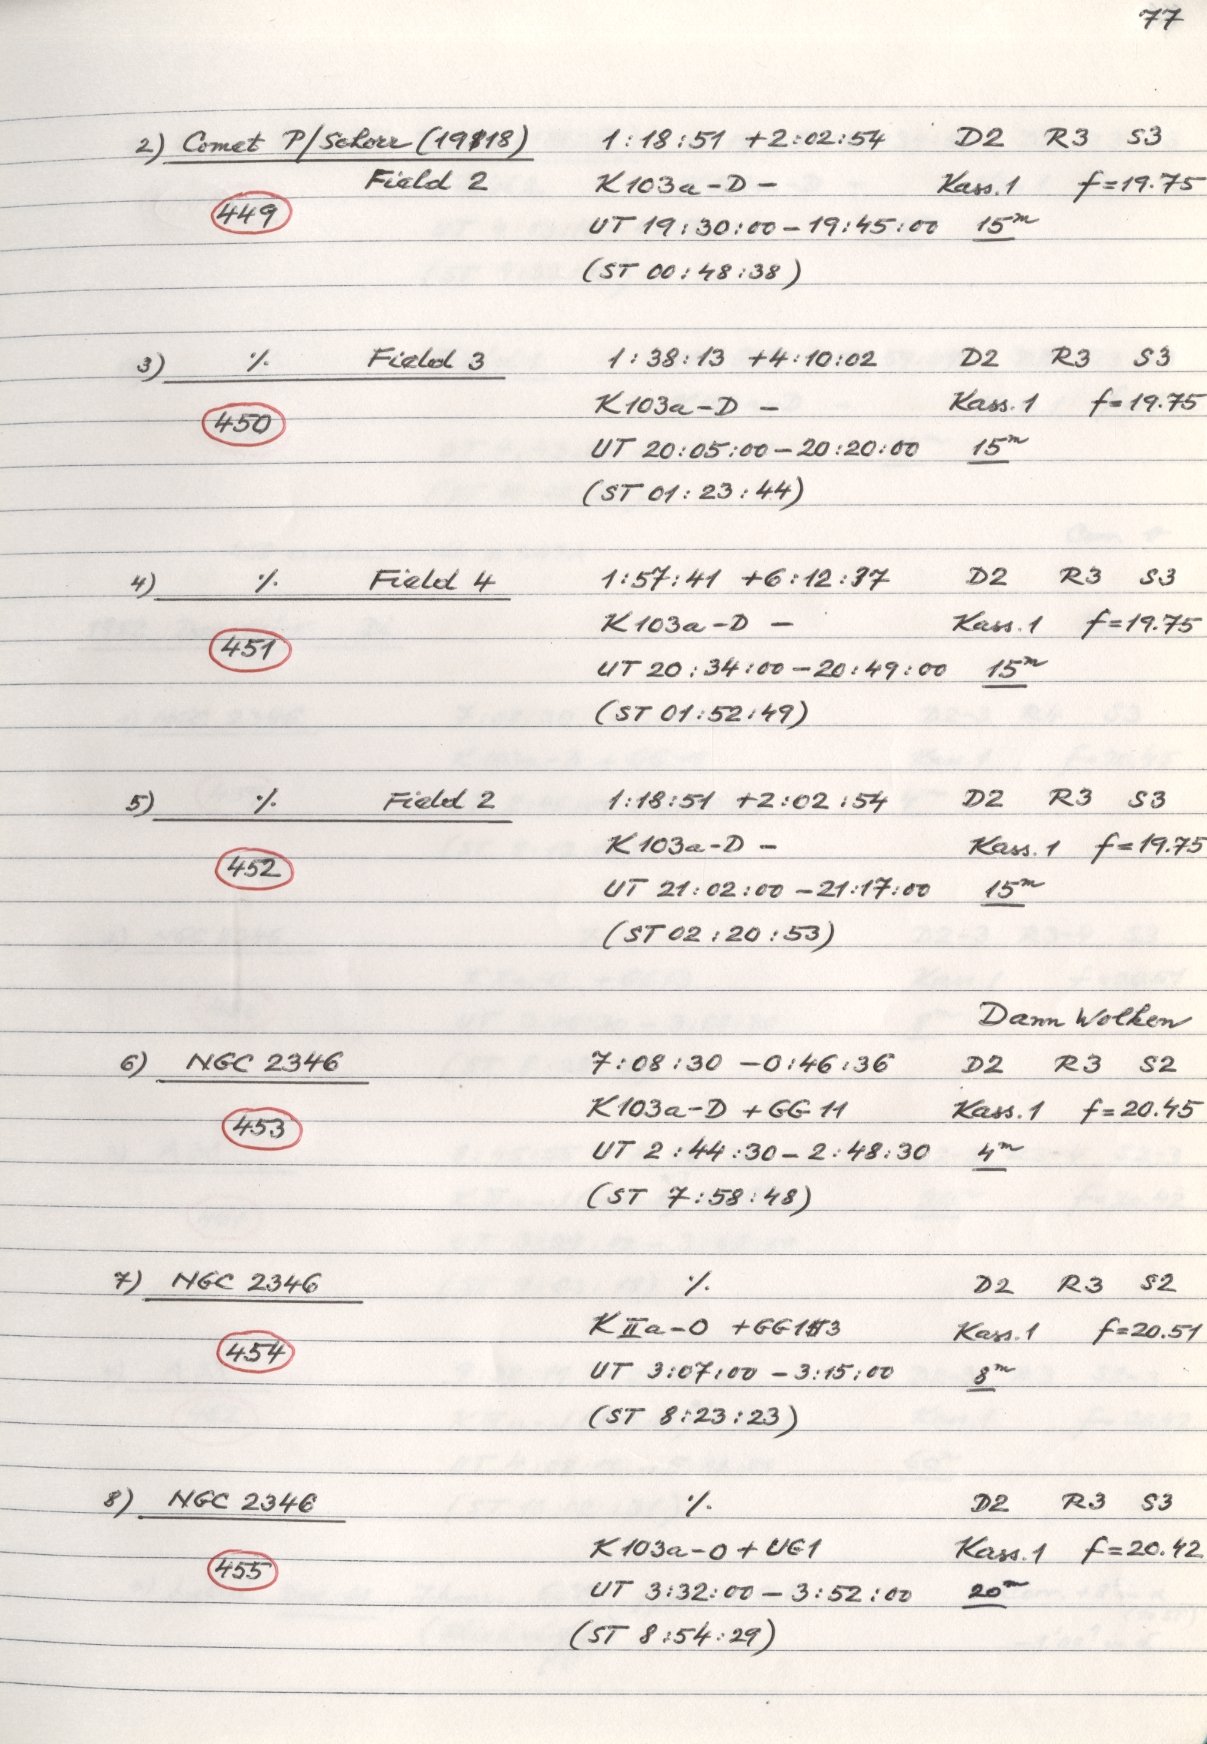 77
2) Comet P/Schorr (1918) 1:18:51 +2:02:54 D2 R3 S3
Field 2 K103a-D - Kass.1 f=19.75
449 UT 19:30:00-19:45:00 15m
(ST 00:48:38)
3) ٪ Field 3 1:38:13 +4:10:02 D2 R3 S3
K103a-D - Kass.1 f=19.75
450 UT 20:05:00-20:20:00 15m
(ST 01:23:44)
4) ٪ Field 4 1:57:41 +6:12:37 D2 R3 S3
K103a-D - Kass.1 f=19.75
451 UT 20:34:00-20:49:00 15m
(ST 01:52:49)
5) ٪ Field 2 1:18:51 +2:02:54 D2 R3 S3
K103a-D - Kass.1 f=19.75
452 UT 21:02:00-21:17:00 15m
(ST 02:20:53)
Dann Wolken
6) NGC 2346 7:08:30 -0:46:36 D2 R3 S2
K103a-D +GG11 Kass.1 f=20.45
453 UT 2:44:30-2:48:30 4m
(ST 7:58:48)
7) NGC 2346 ٪ D2 R3 S2
KIIa-O +GG13 Kass.1 f=20.51
454 UT 3:07:00-3:15:00 8m
(ST 8:23:23)
8) NGC 2346 ٪ D2 R3 S3
K103a-O+UG1 Kass.1 f=20.42
455 UT 3:32:00-3:52:00 20m
(ST 8:54:29)